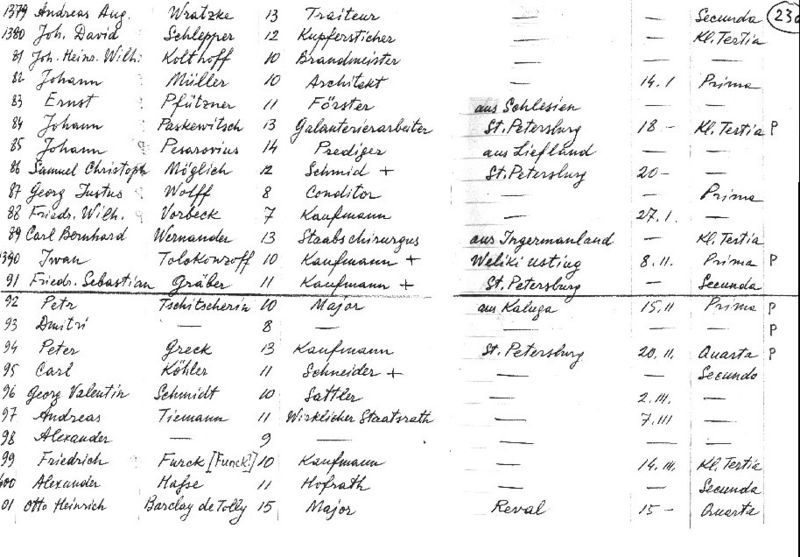 1379 Andreas Aug. Wratzke 13 Traiteur — — Secunda 230
1380 Joh. David Schlepper 12 Kupferstecher — — Kl. Tertia
81 Joh. Heinr. Wilh. Kolthoff 10 Brandmeister — — —
82 Johann Müller 10 Architekt — 14.1 Prima
83 Ernst Pfützner 11 Förster aus Schlesien — —
84 Johann Paskewitsch 13 Galanteriearbeiter St. Petersburg 18 – Kl. Tertia P
85 Johann Pesarovius 14 Prediger aus Liefland — —
86 Samuel Christoph Möglich 12 Schmid + St. Petersburg 20 – —
87 Georg Justus Wolff 8 Conditor — — Prima
88 Friedr. Wilh. Vorbeck 7 Kaufmann — 27.1. —
89 Carl Bernhard Wernander 13 Staabschirurgus aus Ingermanland — Kl. Tertia
1390 Iwan Tolokonzoff 10 Kaufmann + Weliki Usting 8.11. Prima P
91 Friedr. Sebastian Gräber 11 Kaufmann + St. Petersburg — Secunda
92 Petr Tschitscherin 10 Major aus Kaluga 15.II Prima P
93 Dmitri — 8 — — — — P
94 Peter Greck 13 Kaufmann St. Petersburg 20.II. Quarta P
95 Carl Köhler 11 Schneider + — — Secunda
96 Georg Valentin Schmidt 10 Sattler — 2.III. —
97 Andreas Tiemann 11 Wirklicher Staatsrath — 7.III —
98 Alexander — 9 — — — —
99 Friedrich Furck [Funck!] 10 Kaufmann — 14.III. Kl. Tertia
400 Alexander Hasse 11 Hofrath — — Secunda
01 Otto Heinrich Barclay de Tolly 15 Major Reval 15 – Quarta